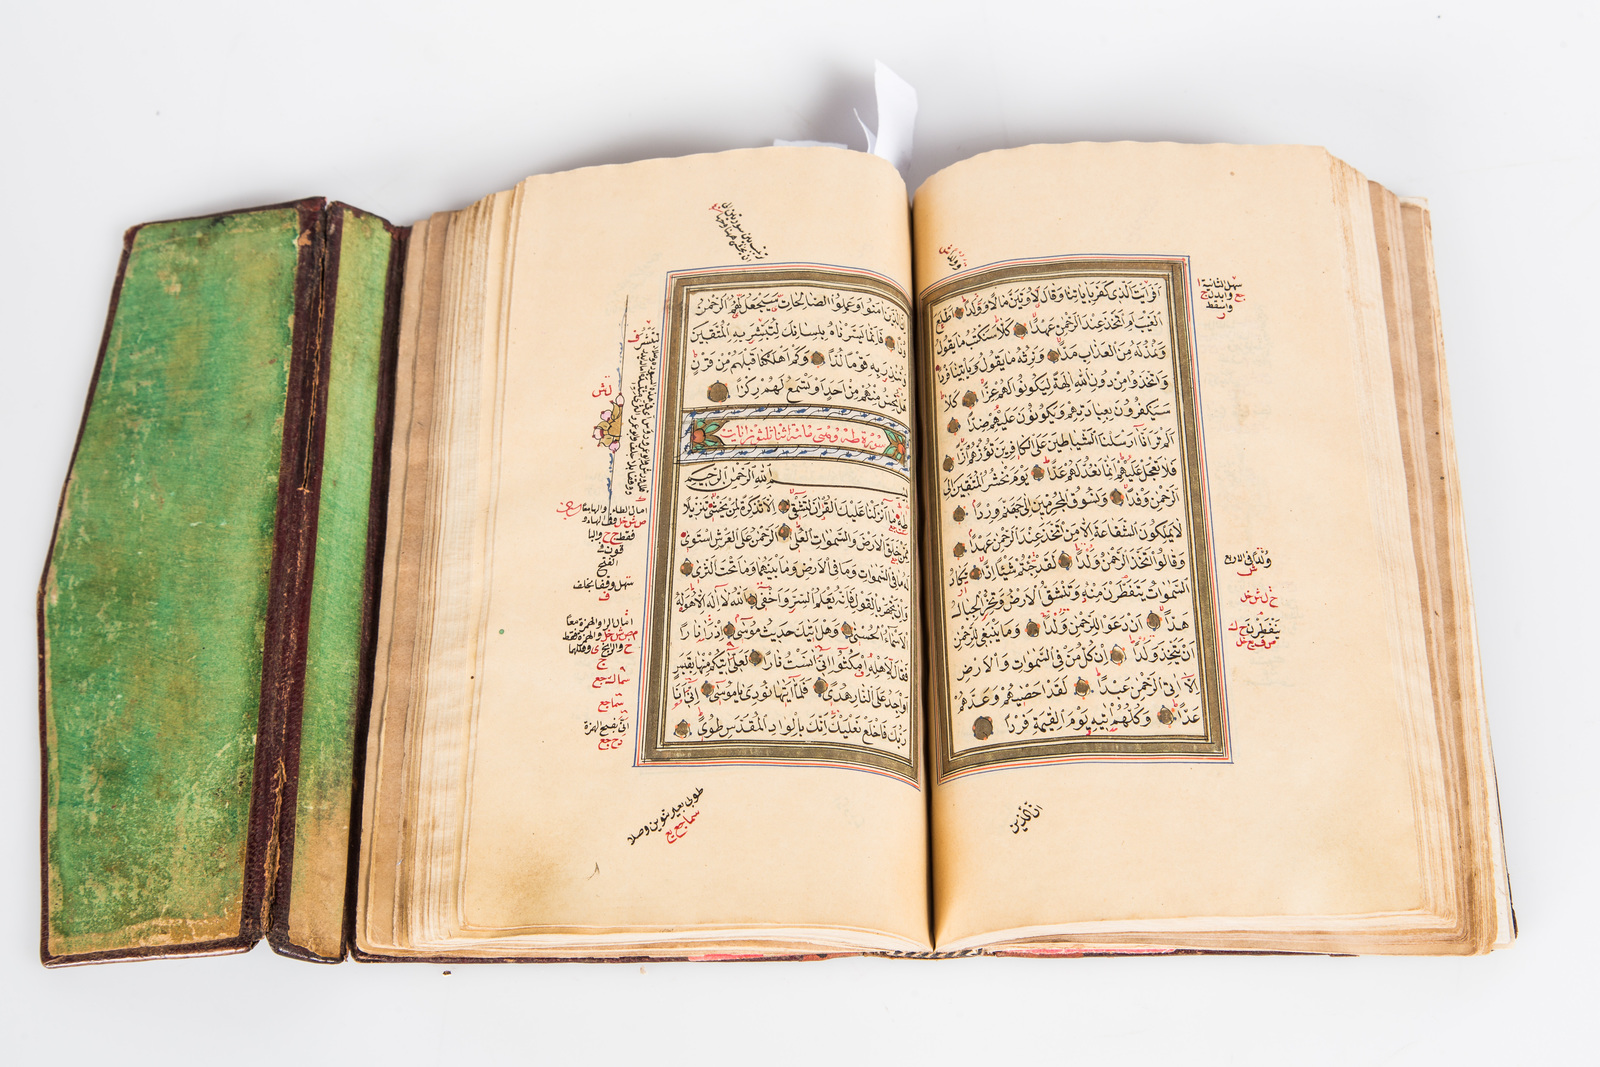 افرايت الذى كفر باياتنا وقال لاوتين مالا وولدا اطلع
الغيب ام اتخذ عند الرحمن عهدا كلا سنكتب ما يقول
ونمد له من العذاب مدا ونرثه ما يقول وياتينا فردا
واتخذوا من دون الله الهة ليكونوا لهم عزا كلا
سيكفرون بعبادتهم ويكونون عليهم ضدا
الم تر انا ارسلنا الشياطين على الكافرين تؤزهم ازا
فلا تعجل عليهم انما نعد لهم عدا يوم نحشر المتقين الى
الرحمن وفدا ونسوق المجرمين الى جهنم وردا
لا يملكون الشفاعة الا من اتخذ عند الرحمن عهدا
وقالوا اتخذ الرحمن ولدا لقد جئتم شيئا ادا تكاد
السموات يتفطرن منه وتنشق الارض وتخر الجبال
هدا ان دعوا للرحمن ولدا وما ينبغى للرحمن
ان يتخذ ولدا ان كل من فى السموات والارض
الا اتى الرحمن عبدا لقد احصيهم وعدهم
عدا وكلهم اتيه يوم القيمة فردا
سهل الثانية
وابدل ج
واسقط
ولدا فى الاربع
يتفطرن ح ك
ان الذين
ان الذين امنوا وعملوا الصالحات سيجعل لهم الرحمن
ودا فانما يسرناه بلسانك لتبشر به المتقين
وتنذر به قوما لدا وكم اهلكنا قبلهم من قرن
هل تحس منهم من احد او تسمع لهم ركزا
سورة طه وهى مائة اثنا ثلثون ايات
بسم الله الرحمن الرحيم
طه ما انزلنا عليك القران لتشقى الا تذكرة لمن يخشى تنزيلا
ممن خلق الارض والسموات العلى الرحمن على العرش استوى
له ما فى السموات وما فى الارض وما بينهما وما تحت الثرى
وان تجهر بالقول فانه يعلم السر واخفى الله لا اله الا هو له
الاسماء الحسنى وهل اتيك حديث موسى اذ را نارا
فقال لاهله امكثوا انى انست نارا لعلى اتيكم منها بقبس
او اجد على النار هدى فلما اتيها نودى يا موسى انى انا
ربك فاخلع نعليك انك بالواد المقدس طوى
امال الطاء والها
فقط ج ح واليا
الفتح
سهل وقفا بخلف
امال الرا والهمزة معا
انى بفتح الهمزة
طوى بغير تنوين وصلا
سما جع يع